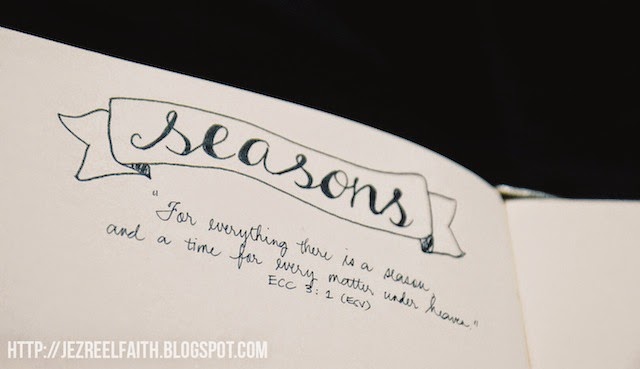 seasons
"For everything there is a season
and a time for every matter under heaven."
ECC 3:1 (ECV)
HTTP://JEZREELFAITH.BLOGSPOT.COM